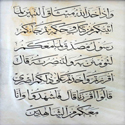 واذ اخذ الله ميثاق النبيين لما
اتيتكم من كتاب وحكمة ثم جاءكم
رسول مصدق لما معكم
لتؤمنن به ولتنصرنه قال
أقررتم واخذتم على ذلكم اصري
قالوا اقررنا قال فاشهدوا وانا
معكم من الشاهدين